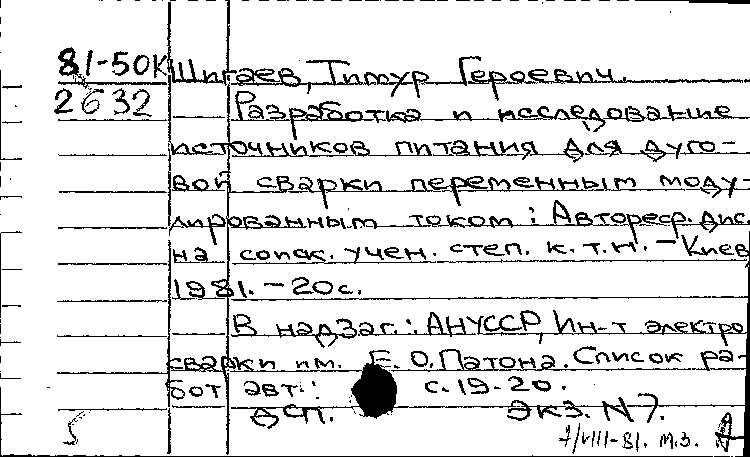 81-50К Шигаев, Тимур Героевич.
2632 Разработка и исследование
источников питания для дуго-
вой сварки переменным моду-
лированным током: Автореф. дис.
на соиск. учен. степ. к.т.н. - Киев,
1981. - 20с.
В надзаг.: АНУССР, Ин-т электро
сварки им. Е.О.Патона. Список ра-
бот авт.: с.19-20.
ДСП. Экз. N7.
5 7/VIII-81. м.з.